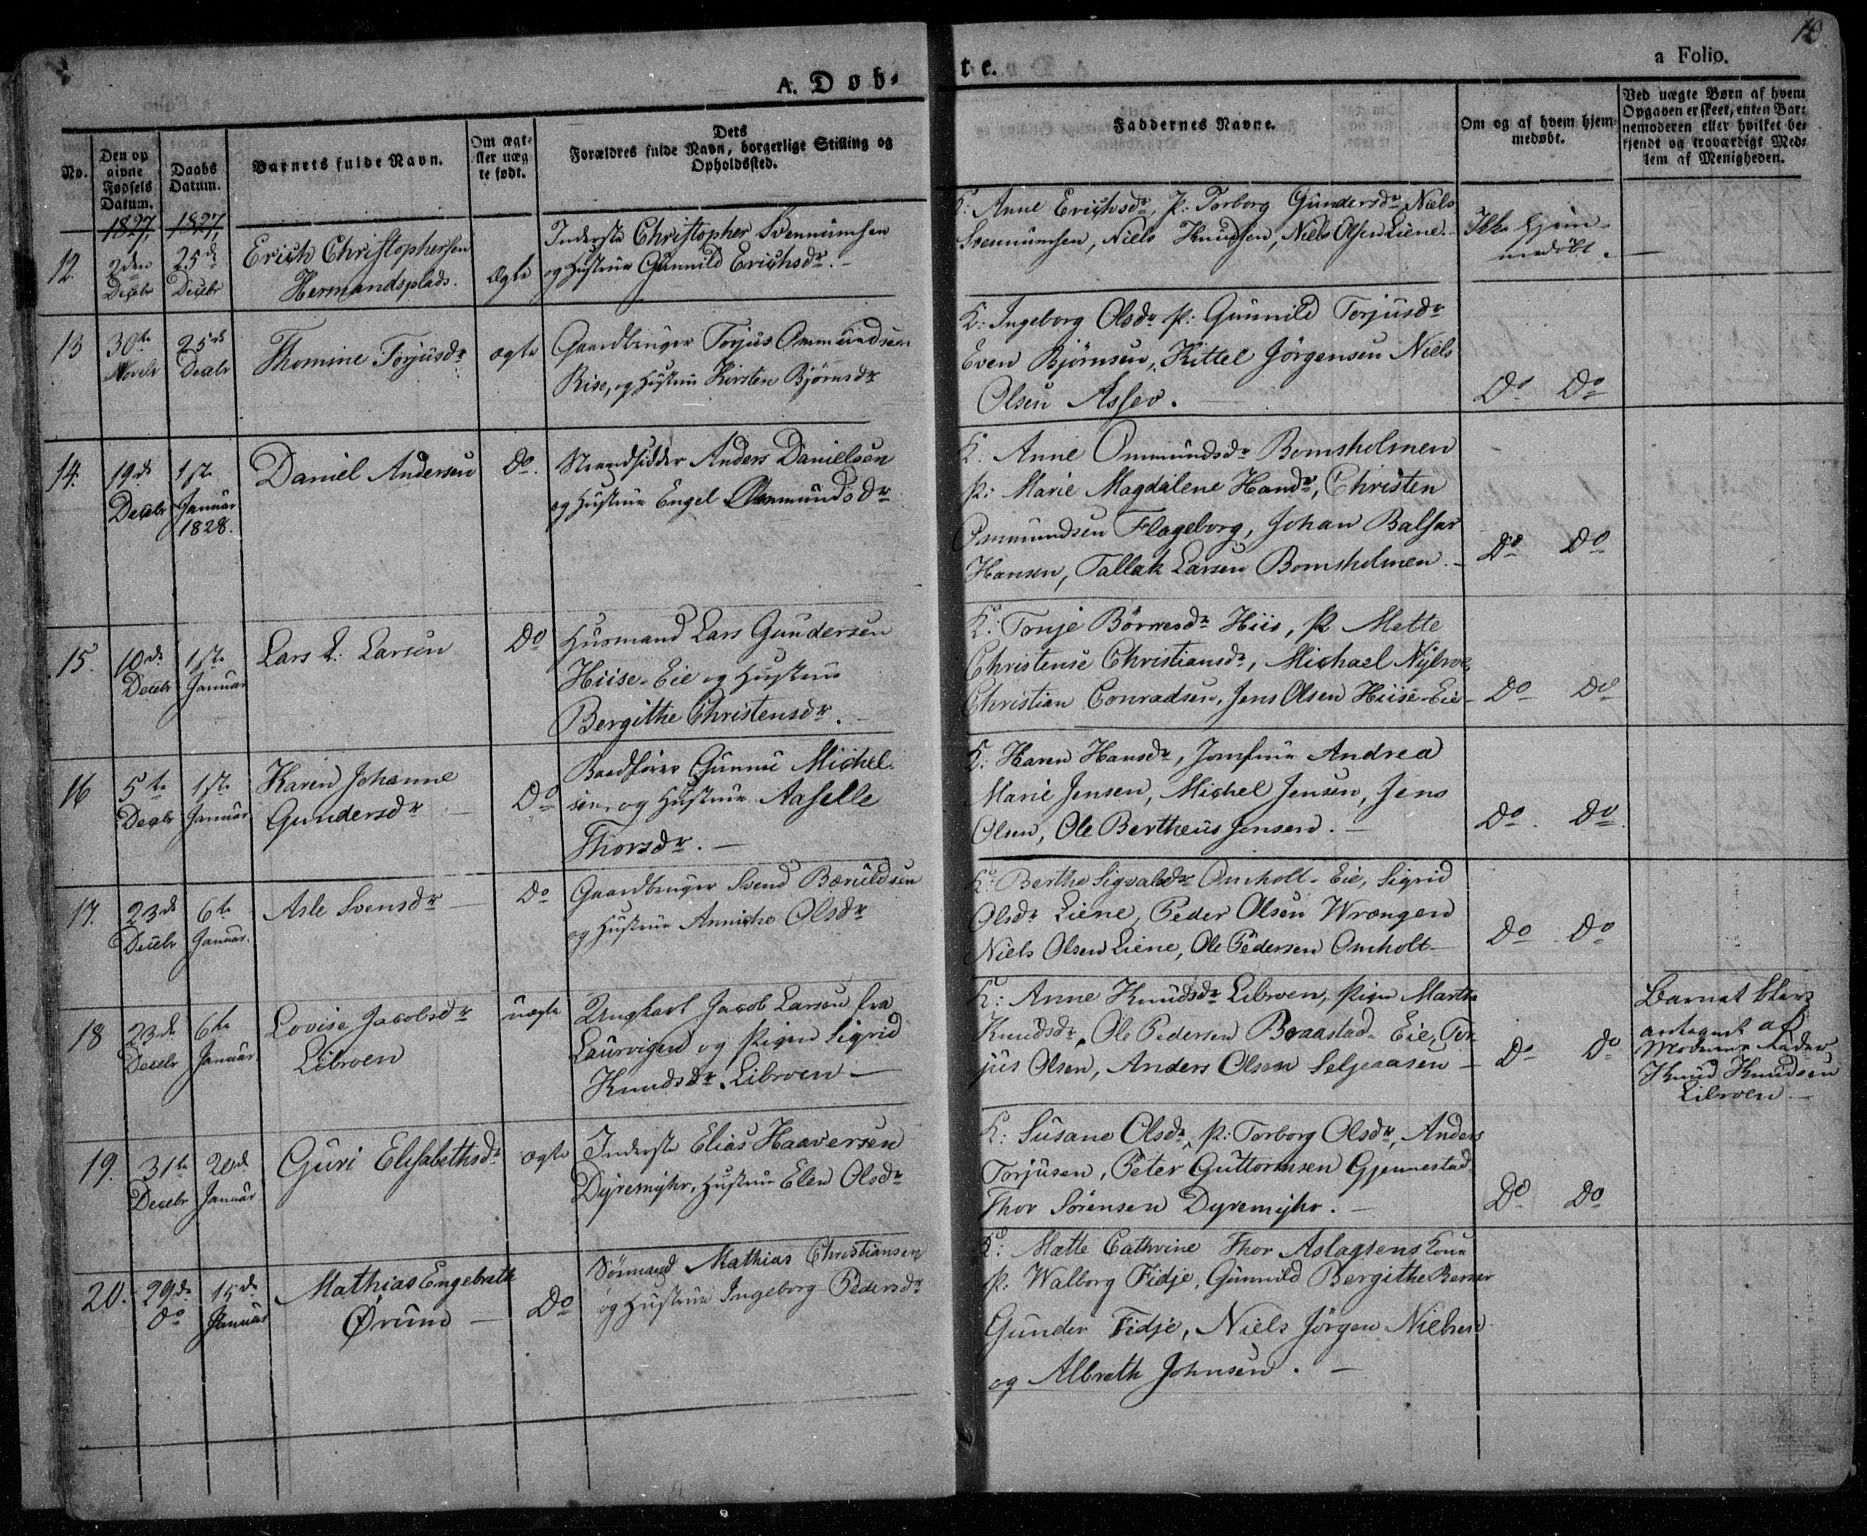 10.
A. Døb-
te.
a Folio.
No.
Den op
givne
Fødsels
Datum.
Daabs
Datum.
Barnets fulde Navn.
Om ægt-
eller uæg
te født.
Dets
Forældres fulde Navn, borgerlige Stilling og
Opholdssted.
Faddernes Navne.
Om og af hvem hjem-
medøbt.
Ved uægte Børn af hvem
Opgaven er skeet, enten Bar-
nemoderen eller hvilket be-
kjendt og troværdigt Med-
lem af Menigheden.
1827, 1827,
12.
2den
Decebr
25de
Decebr
Erich Christophersen
Hermandsplads.
Ægte
Inderste Christopher Svennumsen
og Hustrue Gunnild Erichsdr. –
K: Anne Erichsdr, p: Torborg Gundersdr, Niels
Svennumsen, Niels Knudsen, Niels Olsen Liene. –
Ikke hjem-
medøbt. –
13
30te
Novebr
25de
Decebr
Thomine Torjusdr
ægte
Gaardbruger Torjus Ommundsen
Rise, og Hustrue Kirsten Bjørnsdr
K: Ingeborg Olsdr p: Gunnild Torjusdr
Even Bjørnsen, Kittel Jørgensen Niels
Olsen Assev.
Do Do
14.
19de
Decebr
1ste
Januar
1828.
Daniel Andersen
Do.
Strandsidder Anders Danielsen
og Hustrue Engel Ommundsdr
K. Anne Ommundsdr Bomsholmen
p: Marie Magdalene Handr, Christen
Ommundsen Flageborg, Johan Balsar
Hansen, Tallak Larsen Bomsholmen. –
Do Do
15.
10de
Decebr
1ste
Januar
Lars L. Larsen
Do
Husmand Lars Gundersen
Hiise-Eie og Hustrue
Bergithe Christensdr. –
K: Tonje Børresdr Hiis, p Mette
Christense Christiansdr, Michael Nybroe
Christian Conradsen, Jens Olsen Hiise-Eie –
Do Do
16
5te
Decebr
1ste
Januar
Karen Johanne
Gundersdr
Do
Baadfører Gunne Michel-
sen, og Hustrue Aaselle
Thorsdr. –
K: Karen Hansdr, Jomfrue Andrea
Marie Jensen, Michel Jensen, Jens
Olsen, Ole Bertheus Jensen. –
Do. Do.
17.
23de
Decebr
6te
Januar.
Asle Svensdr
Do
Gaardbruger Svend Bæruldsen
og Hustrue Anniche Olsdr
K: Berthe Sigvaldsdr Omholt-Eie, Sigrid
Olsdr Liene, Peder Olsen Wrængen
Niels Olsen Liene, Ole Pedersen Omholt –
Do Do
18
23de
Decebr
6te
Januar
Lovise Jacobsdr
Libroen
uægte
Ungkarl Jacob Larsen fra
Laurvigen og Pigen Sigrid
Knudsdr. Libroen –
K: Anne Knudsdr Libroen, Pige Marthe
Knudsdr, Ole Pedersen Braastad-Eie, Tor
jus Olsen, Anders Olsen Seljeaasen –
Do Do
Barnet blev
antegnet af
Moderens Fader
Knud Knudsen
Libroen. –
19.
31te
Decebr
20de
Januar
Guri Elisabethsdr
ægte
Inderste Elias Haaversen
Dyremyhr, Hustrue Elen Olsdr
K: Susane Olsdr, p: Torborg Olsdr, Anders
Torjusen, Peter Guttormsen Gjennestad
Thor Sørensen Dyremyhr. –
Do Do
20.
29de
do
15de
Januar
Mathias Engebreth
Ørum –
Do
Sømand Mathias Christiansen
og Hustrue Ingeborg Pedersdr
K: Mætte Cathrine Thor Aslagsens Kone
p. Walborg Fidje, Gunnild Bergithe
Gunder Fidje, Niels Jørgen Nielsen
og Albreth Johnsen. –